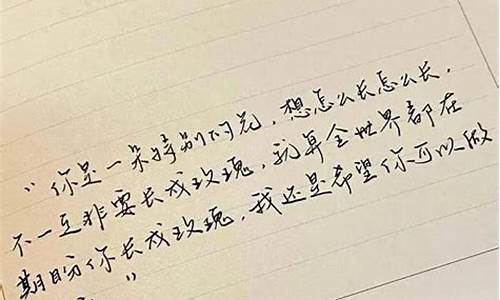 “你是一朵特别的花，想怎么长怎么长，
不一定非要长成玫瑰，就算全世界都在
期盼你长成玫瑰，我还是希望你可以做
”